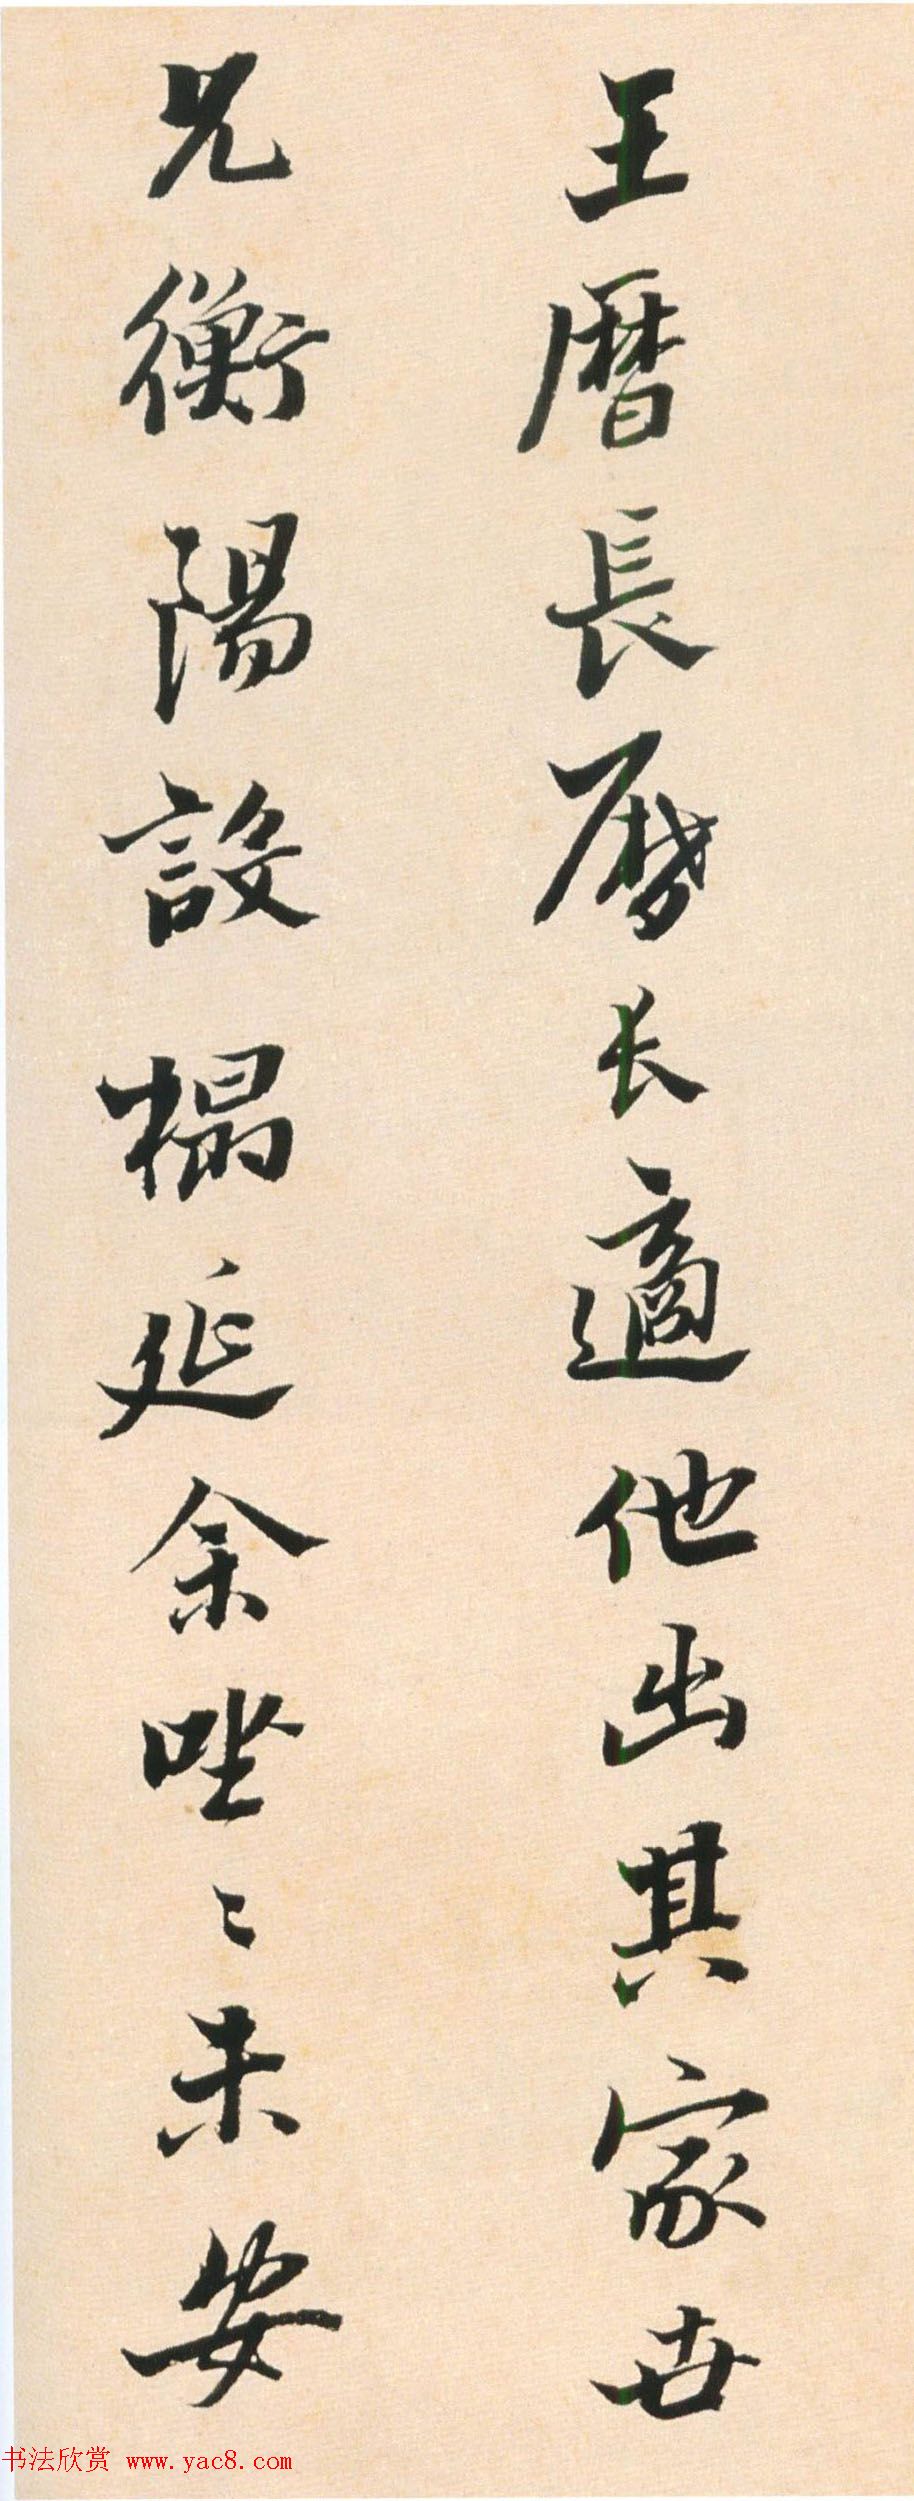 王曆長曆長適他出其家世
兄衡陽設榻延余㘴〻未安
书法欣赏 www.yac8.com